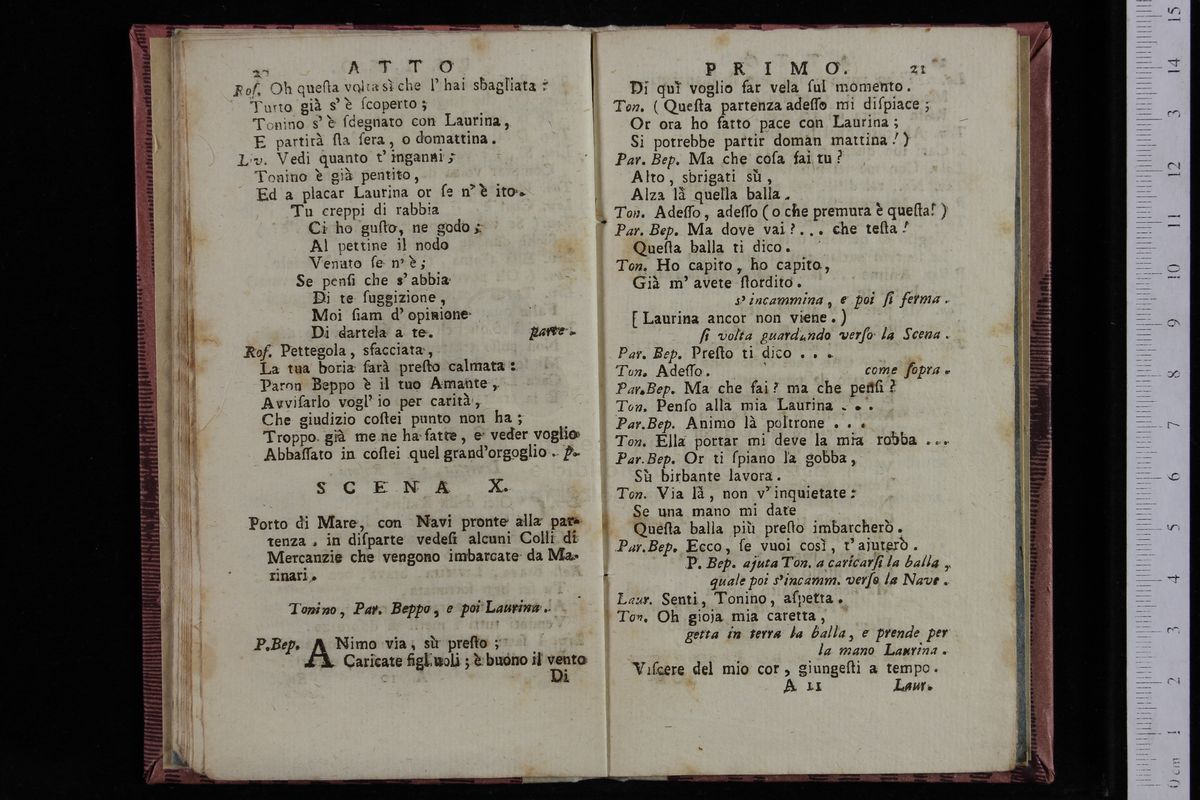 20 ATTO
Roſ. Oh queſta volta sì che l' hai sbagliata:
Tutto già s' è ſcoperto;
Tonino s' è ſdegnato con Laurina,
E partirà ſta ſera, o domattina.
Liv. Vedi quanto t' inganni;
Tonino è già pentito,
Ed a placar Laurina or ſe n' è ito.
Tu creppi di rabbia
Ci ho guſto, ne godo;
Al pettine il nodo
Venuto ſe n' è;
Se penſi che s' abbia
Di te ſuggizione,
Moi ſiam d' opinione
Di dartela a te. parte.
Roſ. Pettegola, sfacciata,
La tua boria ſarà preſto calmata:
Paron Beppo è il tuo Amante,
Avviſarlo vogl' io per carità,
Che giudizio coſtei punto non ha;
Troppo già me ne ha fatte, e veder voglio
Abbaſſato in coſtei quel grand'orgoglio. p.
SCENA X.
Porto di Mare, con Navi pronte alla par-
tenza. in diſparte vedeſi alcuni Colli di
Mercanzie che vengono imbarcate da Ma-
rinari.
Tonino, Par. Beppo, e poi Laurina.
P.Bep. ANimo via, sù preſto;
Caricate figliuoli; è buono il vento
Di
PRIMO. 21
Di quì voglio far vela ſul momento.
Ton. (Queſta partenza adeſſo mi diſpiace;
Or ora ho fatto pace con Laurina;
Si potrebbe partir doman mattina!)
Par. Bep. Ma che coſa fai tu?
Alto, sbrigati sù,
Alza là quella balla.
Ton. Adeſſo, adeſſo (o che premura è queſta!)
Par. Bep. Ma dove vai?... che teſta!
Queſta balla ti dico.
Ton. Ho capito, ho capito,
Già m' avete ſtordito.
s' incammina, e poi ſi ferma.
[Laurina ancor non viene.)
ſi volta guardando verſo la Scena.
Par. Bep. Preſto ti dico...
Ton. Adeſſo. come ſopra.
Par.Bep. Ma che fai? ma che penſi?
Ton. Penſo alla mia Laurina...
Par.Bep. Animo là poltrone...
Ton. Ella portar mi deve la mia robba...
Par.Bep. Or ti ſpiano la gobba,
Sù birbante lavora.
Ton. Via là, non v' inquietate:
Se una mano mi date
Queſta balla più preſto imbarcherò.
Par.Bep. Ecco, ſe vuoi così, t' ajuterò.
P. Bep. ajuta Ton. a caricarſi la balla,
quale poi s'incamm. verſo la Nave.
Laur. Senti, Tonino, aſpetta.
Ton. Oh gioja mia caretta,
getta in terra la balla, e prende per
la mano Laurina.
Viſcere del mio cor, giungeſti a tempo.
A 11 Laur.
0cm 1 2 3 4 5 6 7 8 9 10 11 12 13 14 15